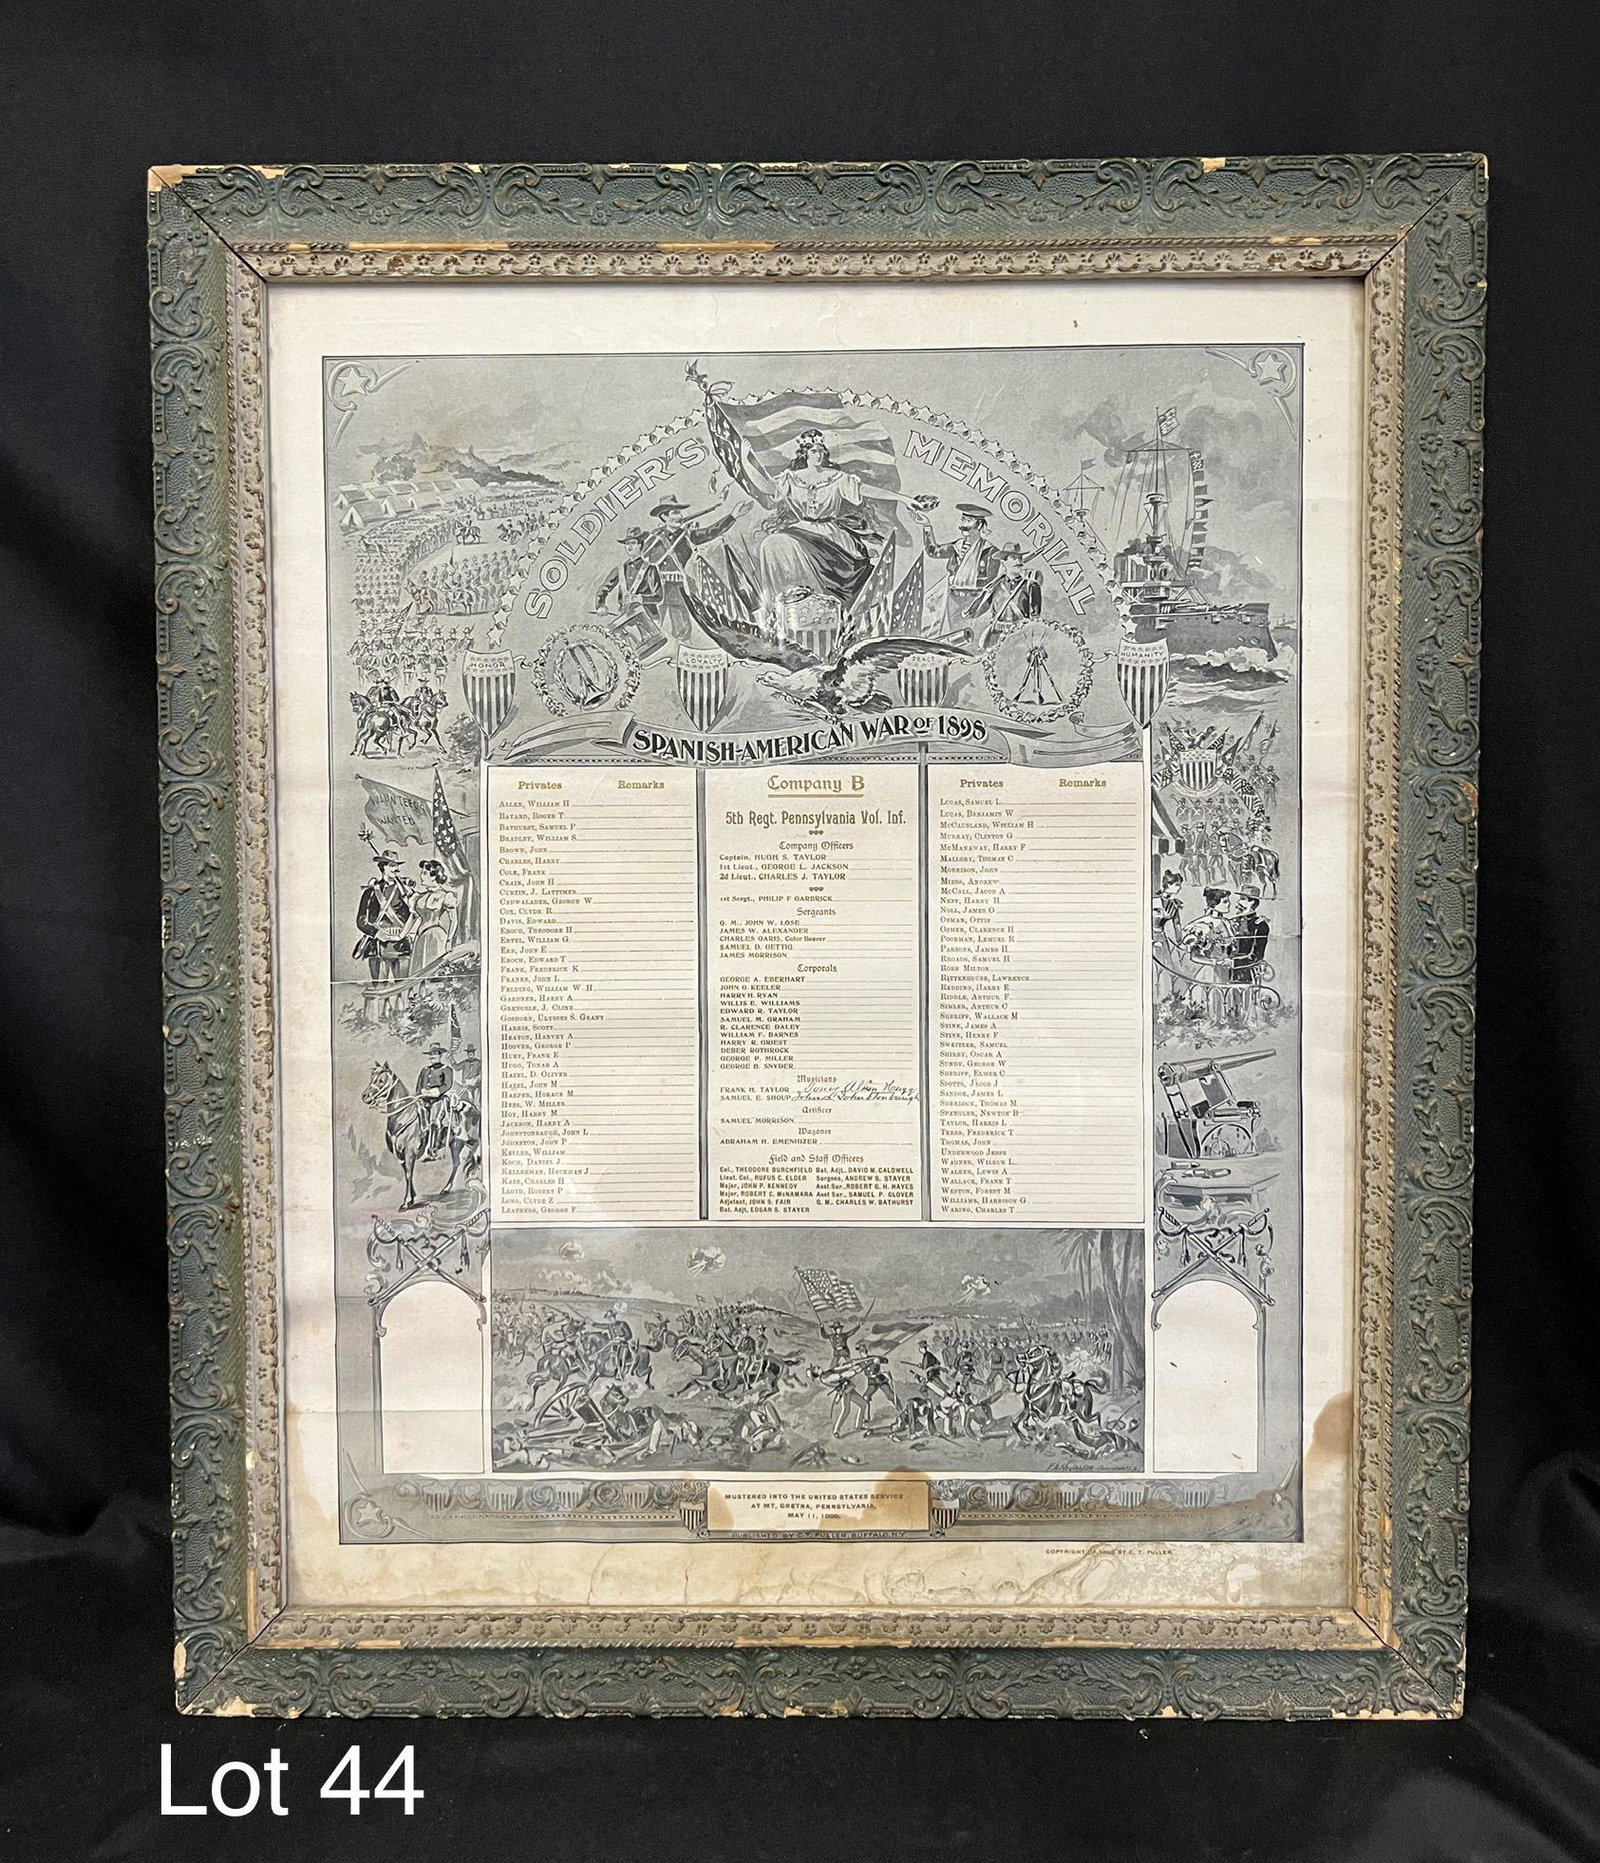 SOLDIER'S MEMORIAL
HONOR
LOYALTY
PEACE
HUMANITY
SPANISH-AMERICAN WAR OF 1898
VOLUNTEERS
WANTED
Privates Remarks
ALLEN, WILLIAM H
BAYARD, ROGER T
BATHURST, SAMUEL P
BRADLEY, WILLIAM S
BROWN, JOHN
CHARLES, HARRY
COLE, FRANK
CRAIN, JOHN H
CURTIN, J. LATTIMER
CADWALADER, GEORGE W
COX, CLYDE R
DAVIS, EDWARD
EBOCH, THEODORE H
ERTEL, WILLIAM G
ERB, JOHN E
EBOCH, EDWARD T
FRANK, FREDERICK K
FRANKS, JOHN L
FELDING, WILLIAM W. H.
GARDNER, HARRY A
GRENOBLE, J. CLINE
GOSHORN, ULYSSES S. GRANT
HARRIS, SCOTT
HEATON, HARVEY A
HOOVER, GEORGE P
HUEY, FRANK E
HUGG, TONAR A
HAZEL, D. OLIVER
HAZEL, JOHN M
HARPER, HORACE M
HESS, W. MILLER
HOY, HARRY M
JACKSON, HARRY A
JOHNSTONBAUGH, JOHN L
JOHNSTON, JOHN P
KELLER, WILLIAM
KOCH, DANIEL J
KELLERMAN, HECKMAN J
KASE, CHARLES H
LLOYD, ROBERT P
LONG, CLYDE Z
LEATHERS, GEORGE F
Company B
5th Regt. Pennsylvania Vol. Inf.
Company Officers
Captain, HUGH S. TAYLOR
1st Lieut., GEORGE L. JACKSON
2d Lieut., CHARLES J. TAYLOR
1st Sergt., PHILIP F GARBRICK
Sergeants
Q. M., JOHN W. LOSE
JAMES W. ALEXANDER
CHARLES GARIS, Color Bearer
SAMUEL D. GETTIG
JAMES MORRISON
Corporals
GEORGE A. EBERHART
JOHN O. KEELER
HARRY H. RYAN
WILLIS E. WILLIAMS
EDWARD R. TAYLOR
SAMUEL M. GRAHAM
R. CLARENCE DALEY
WILLIAM F. BARNES
HARRY R. GRIEST
DEBER ROTHROCK
GEORGE P. MILLER
GEORGE B. SNYDER
Musicians
FRANK H. TAYLOR Toner Albin Hugg
SAMUEL E. SHOUP John L Johnstonbaugh
Artificer
SAMUEL MORRISON
Wagoner
ABRAHAM H. EMENHIZER
Field and Staff Officers
Col., THEODORE BURCHFIELD Bat. Adjt., DAVID M. CALDWELL
Lieut. Col., RUFUS C. ELDER Surgeon, ANDREW S. STAYER
Major, JOHN P. KENNEDY Asst Sur., ROBERT G. H. HAYES
Major, ROBERT C. McNAMARA Asst Sur., SAMUEL P. GLOVER
Adjutant, JOHN S. FAIR Q. M., CHARLES W. BATHURST
Bat. Adjt, EDGAR S. STAYER
Privates Remarks
LUCAS, SAMUEL L.
LUCAS, BENJAMIN W
McCAUSLAND, WILLIAM H
MURRAY, CLINTON G
McMANAWAY, HARRY F
MALLORY, THOMAS C
MORRISON, JOHN
MIESS, ANDREW
McCALL, JACOB A
NEFF, HARRY H
NOLL, JAMES O
OSMAN, OTTIS
OSMER, CLARENCE H
POORMAN, LEMUEL R
PARSONS, JAMES H
RHOADS, SAMUEL H
ROBB MILTON
RITTENHOUSE, LAWRENCE
REDDING, HARRY E
RIDDLE, ARTHUR F
SIMLER, ARTHUR C
SHERIFF, WALLACE M
STINE, JAMES A
STINE, HENRY F
SWEITZER, SAMUEL
SHIREY, OSCAR A
SUNDY, GEORGE W
SHERIFF, ELMER C
SPOTTS, JACOB J
SANDOE, JAMES L
SHERLOCK, THOMAS M
SPANGLER, NEWTON B
TAYLOR, HARRIS L
TEBBS, FREDERICK T
THOMAS, JOHN
UNDERWOOD JESSE
WAGNER, WILBUR L.
WALKER, LEWIS A
WALLACE, FRANK T
WESTON, FOREST M
WILLIAMS, HARRISON G
WARING, CHARLES T
MUSTERED INTO THE UNITED STATES SERVICE
AT MT. GRETNA, PENNSYLVANIA,
MAY 11, 1898.
PUBLISHED BY C.T. FULLER, BUFFALO, N.Y.
COPYRIGHTED 1898 BY C. T. FULLER.
Lot 44